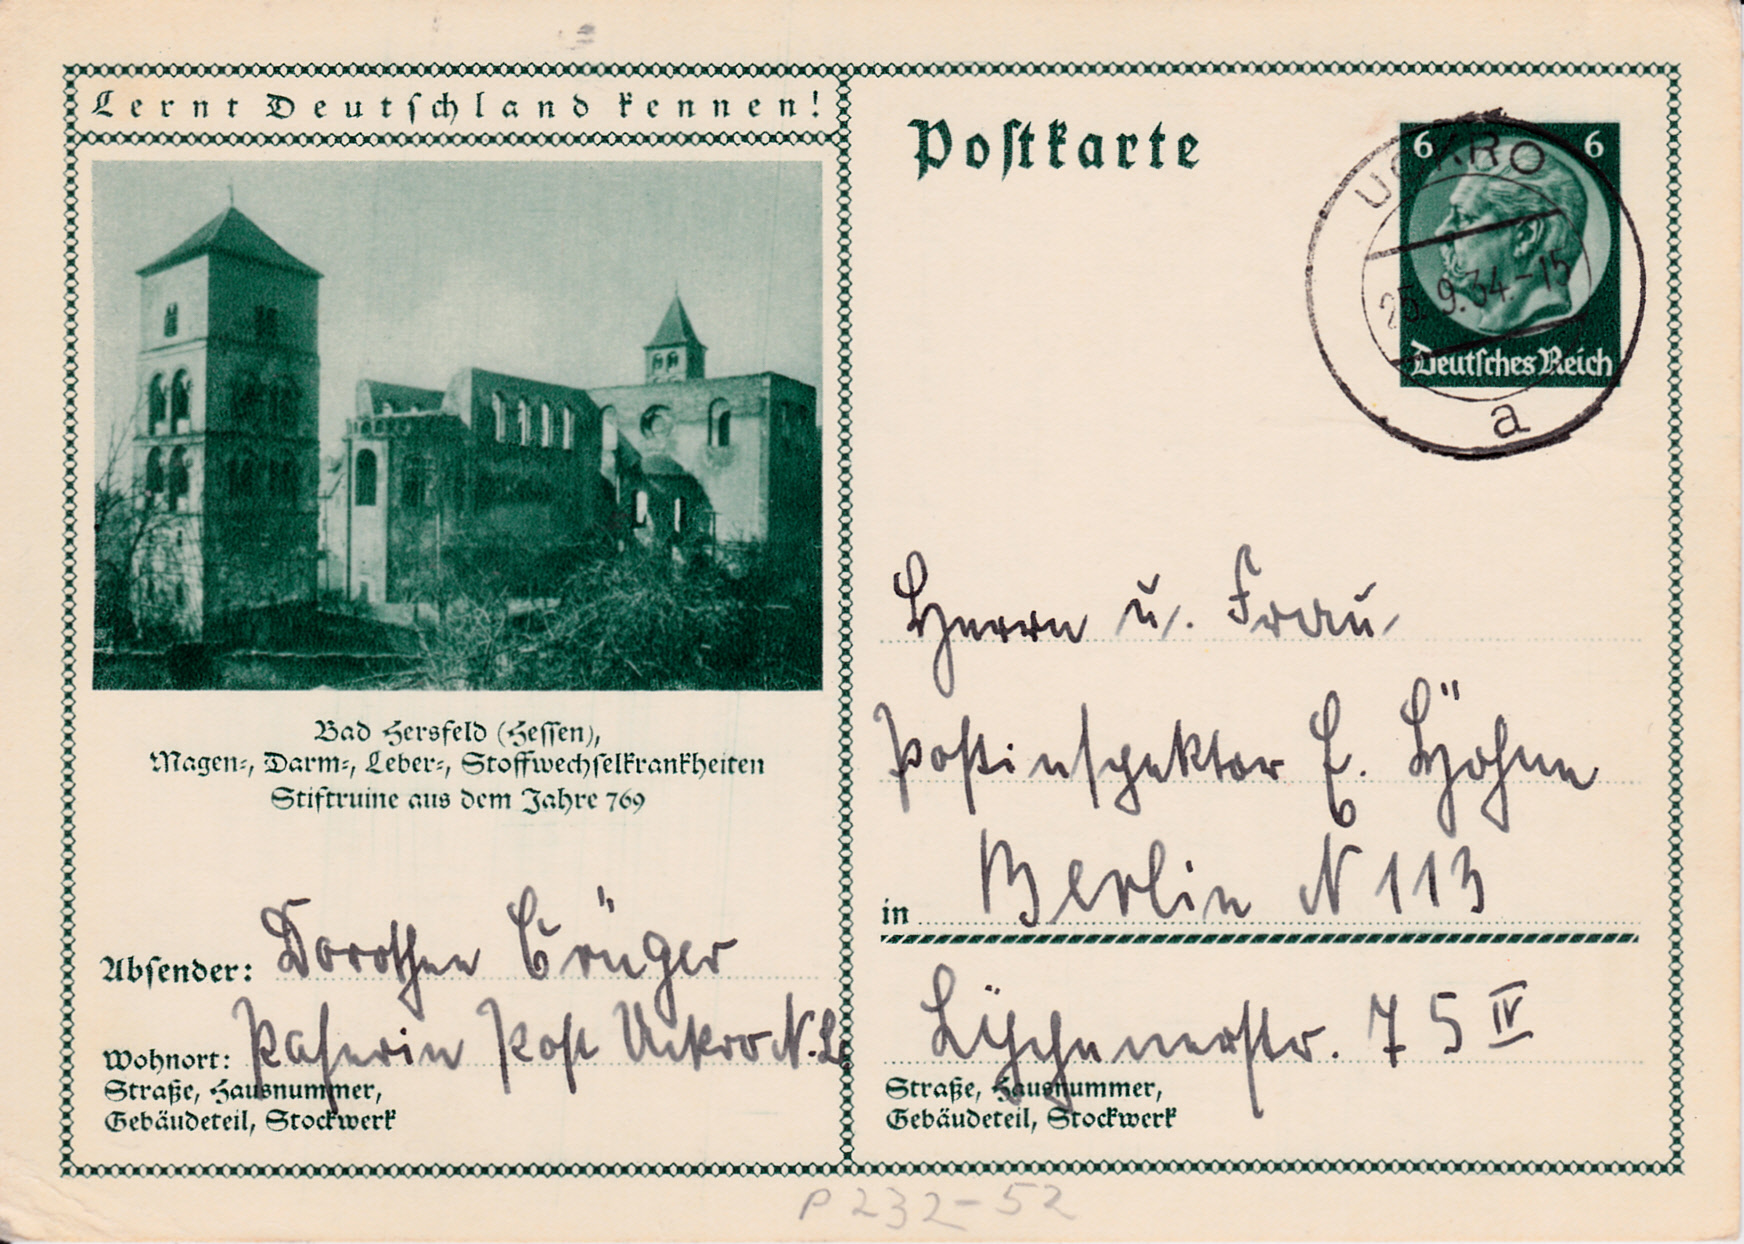 Lernt Deutschland kennen!
Bad Hersfeld (Hessen),
Magen-, Darm-, Leber-, Stoffwechselkrankheiten
Stiftruine aus dem Jahre 769
Absender: Dorothea Crüger
Wohnort: Paserin Post Uckro N.L.
Straße, Hausnummer,
Gebäudeteil, Stockwerk
Postkarte
6 6
Deutsches Reich
UCKRO
25.9.34.-15
a
Herrn u. Frau
Postinspektor E. Höhne
in Berlin N 113
Lychenerstr. 75 IV
Straße, Hausnummer,
Gebäudeteil, Stockwerk
P 232-52